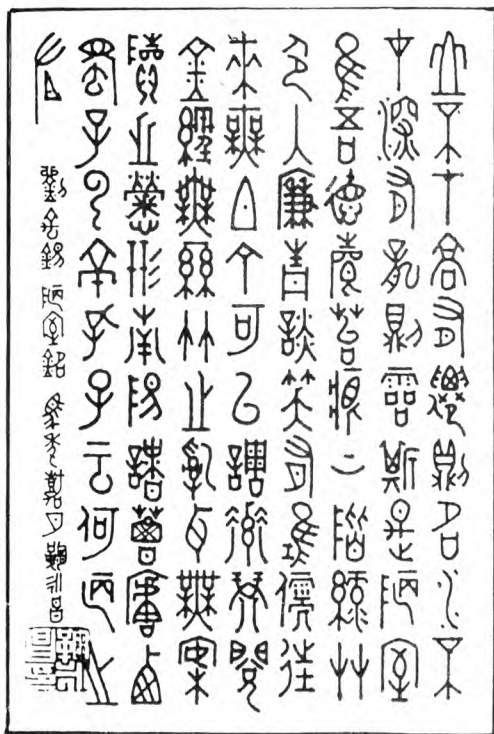 山不在高有僊則名水不
在深有龍則靈斯是陋室
惟吾德馨苔痕上階綠草
色入簾青談笑有鴻儒往
來無白丁可以調素琴閱
金經無絲竹之亂耳無案
牘之勞形南陽諸葛廬西
蜀子雲亭孔子云何陋之
有
劉禹錫 陋室銘